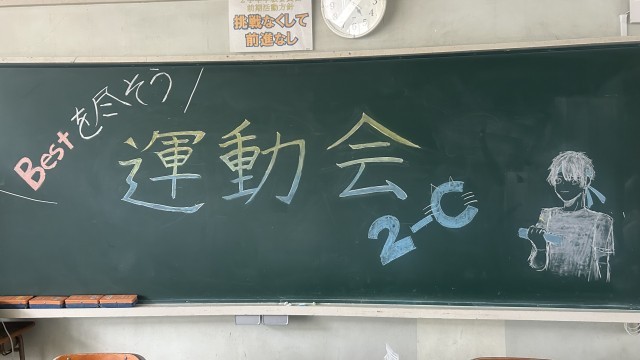 前期活動方針
挑戦なくして
前進なし
Bestを尽そう/
運動会
2-C